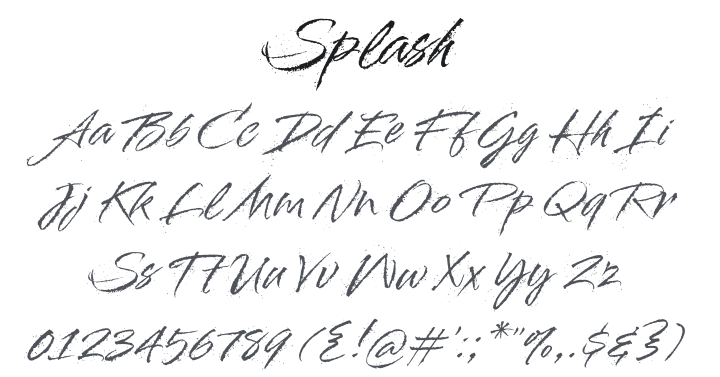 Splash
Aa Bb Cc Dd Ee Ff Gg Hh Ii
Jj Kk Ll Mm Nn Oo Pp Qq Rr
Ss Tt Uu Vv Ww Xx Yy Zz
0123456789 ({!@#':;*"%,.$&})